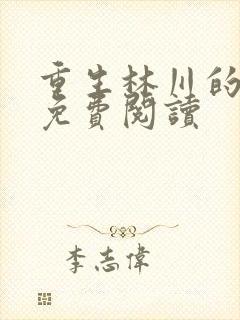 重生林川的
免費閱讀
李志偉